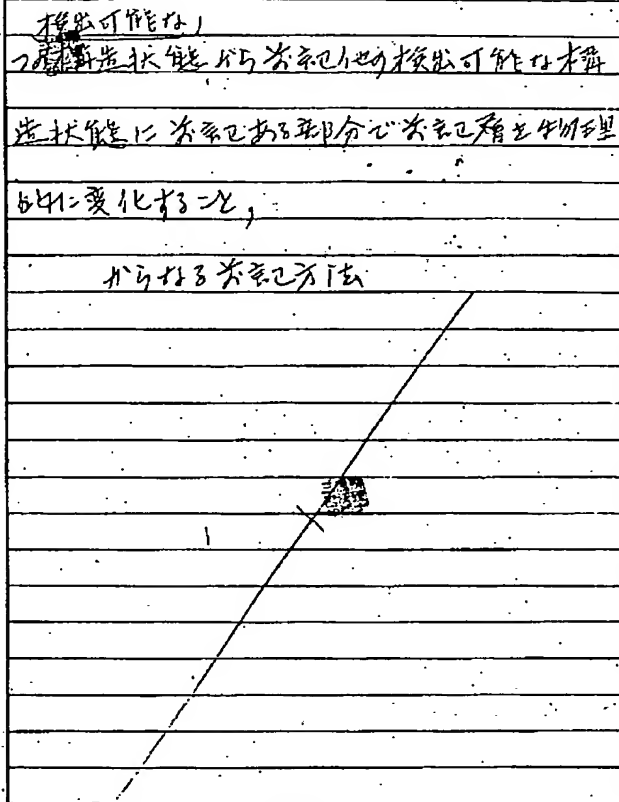 検出可能な
つの構造状態から前記他の検出可能な構
造状態に前記ある部分で前記層を物理
的に変化すること,
からなる前記方法